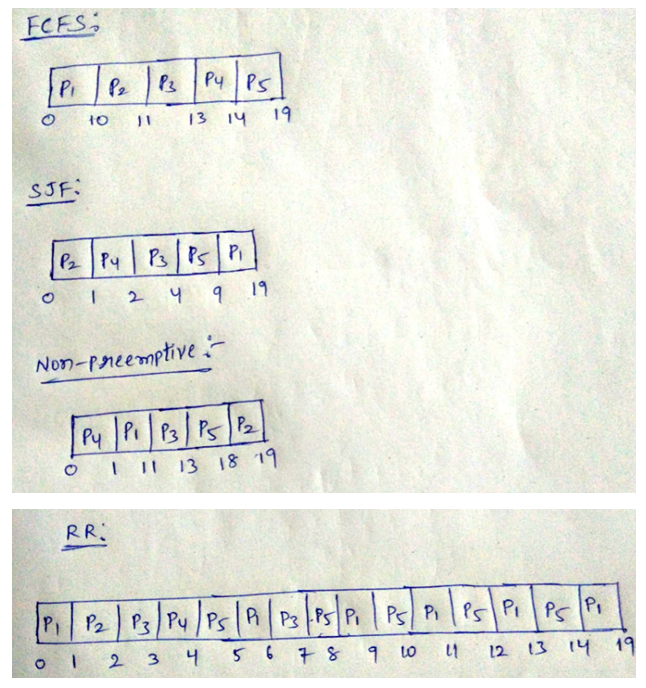 FCFS:
P1 P2 P3 P4 P5
0 10 11 13 14 19
SJF:
P2 P4 P3 P5 P1
0 1 2 4 9 19
Non-preemptive :-
P4 P1 P3 P5 P2
0 1 11 13 18 19
RR:
P1 P2 P3 P4 P5 P1 P3 P5 P1 P5 P1 P5 P1 P5 P1
0 1 2 3 4 5 6 7 8 9 10 11 12 13 14 19